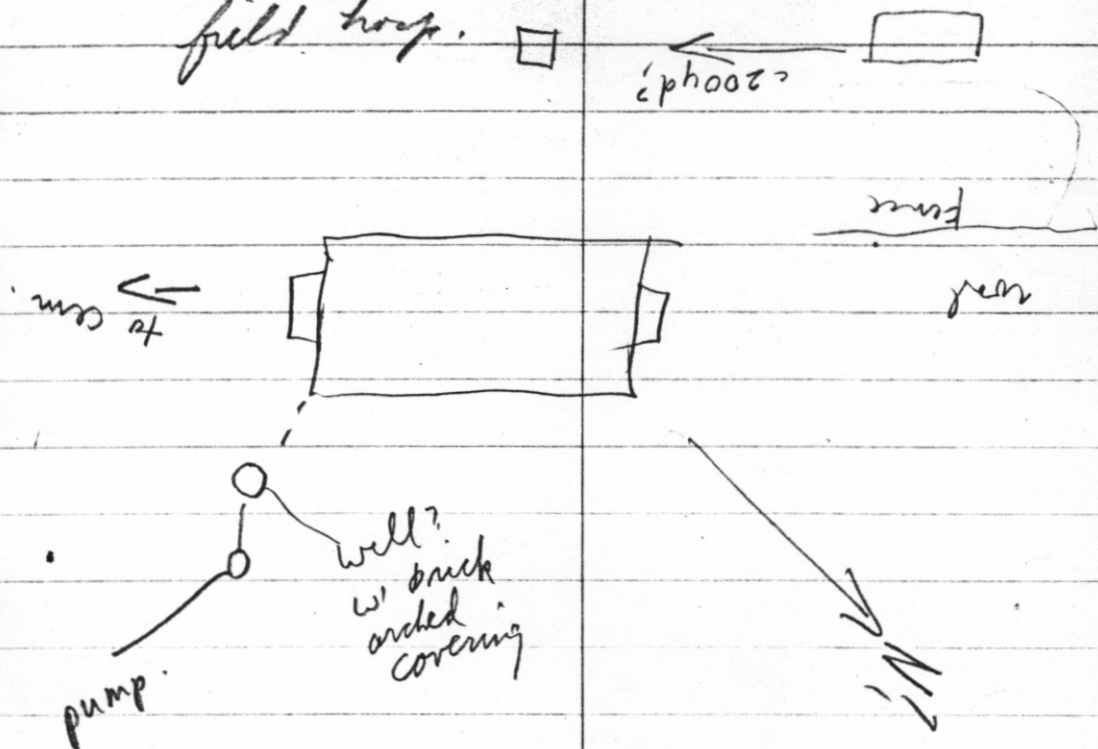 field hosp.
≈200yd?
Fence
road
to cem.
well?
w/ brick
arched
covering
pump
N